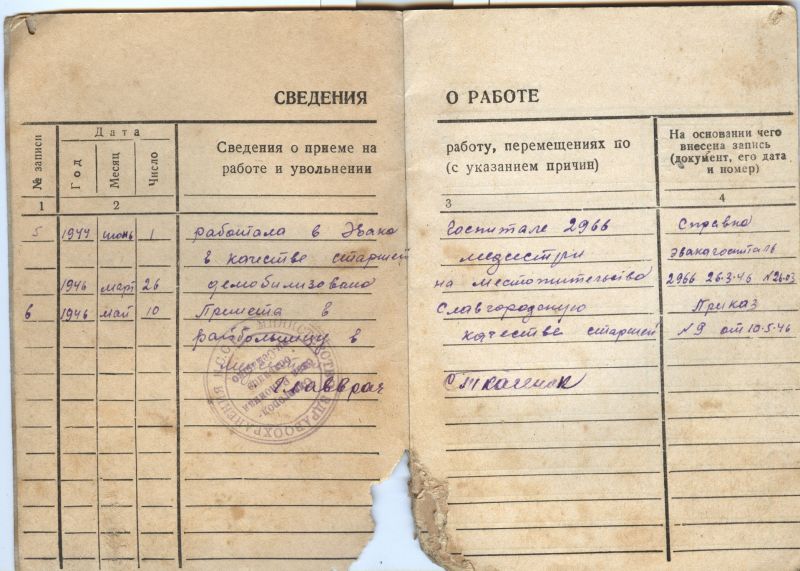 СВЕДЕНИЯ О РАБОТЕ
№ записи
Дата
Год
Месяц
Число
Сведения о приеме на работу, перемещениях по
работе и увольнении (с указанием причин)
На основании чего
внесена запись
(документ, его дата
и номер)
1 2 3 4
5 1944 июнь 1 работала в Эвако Госпитале 2966 Справка
в качестве старшей медсестри эвакагоспиталь
1946 март 26 демобилизована на местожительства 2966 26-3-46 №26-03
6 1946 май 10 Принета в Славгородскую Приказ
райбольницу в качестве старшей №9 от 10-5-46
Главврач
МИНИСТЕРСТВО ЗДРАВООХРАНЕНИЯ